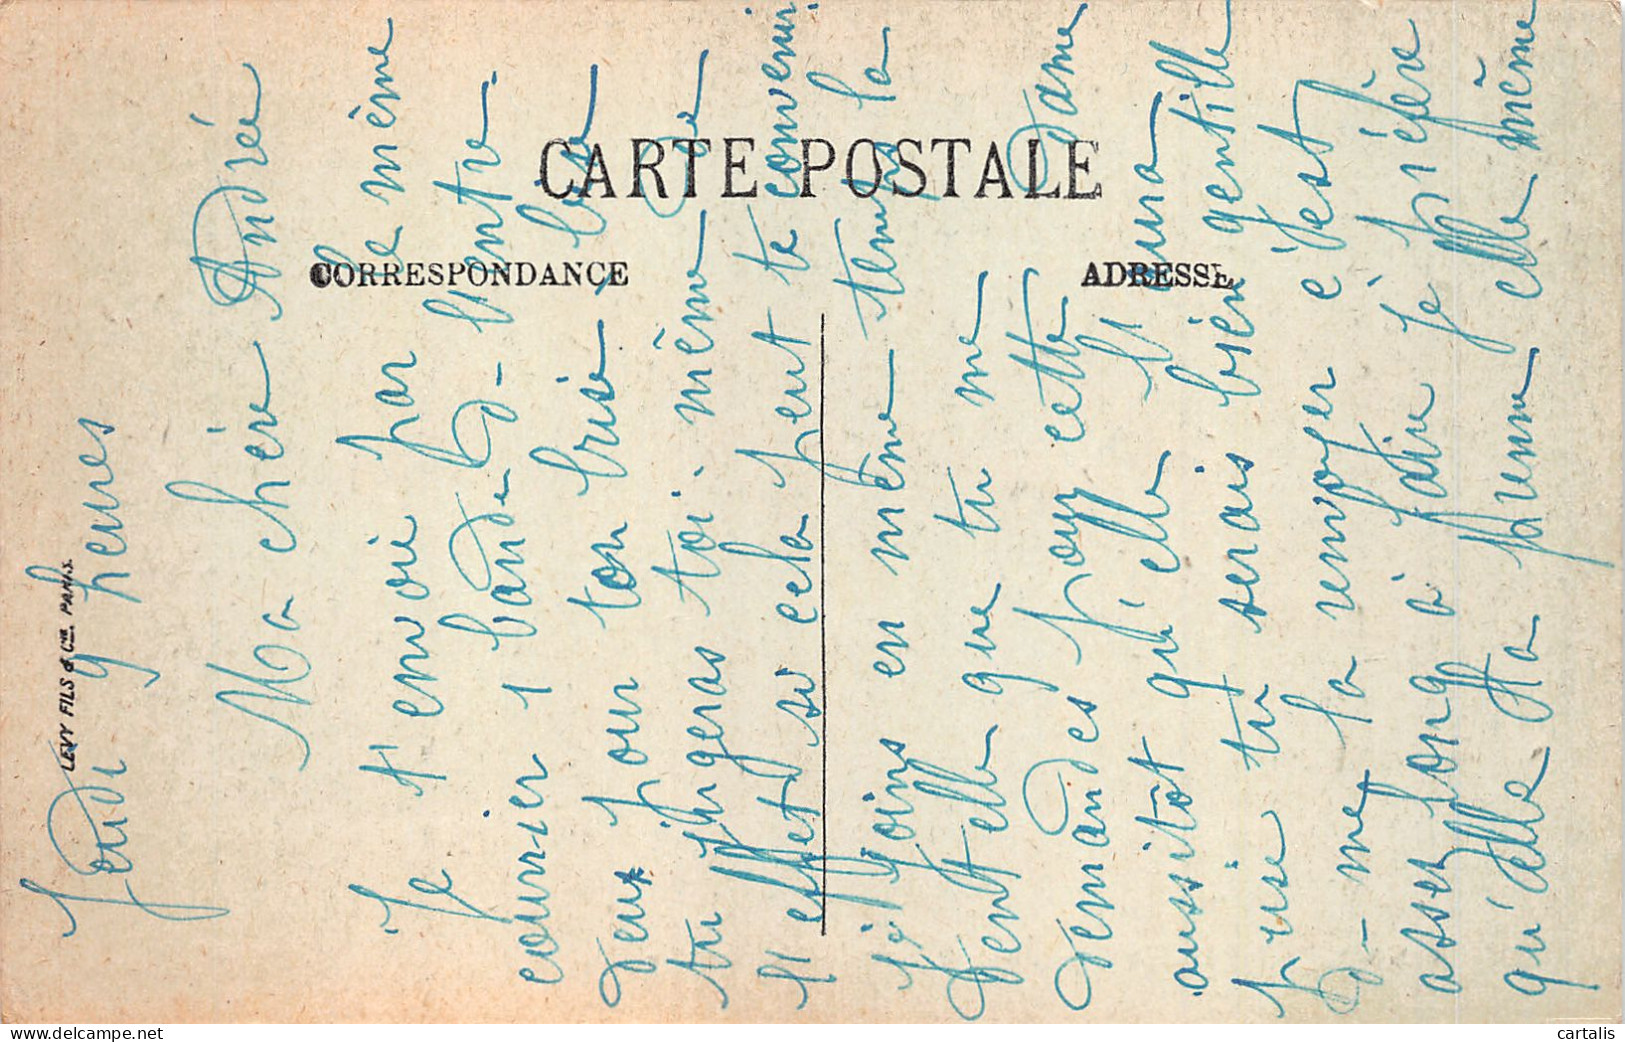 CARTE POSTALE
CORRESPONDANCE
ADRESSE
LEVY FILS & Cie. PARIS.
Jeudi 9 heures
Ma chère Andrée
Je t'envoie par le même
courrier 1 bande d'entre-
deux pour ton brise-bise
tu jugeras toi-même de
l'effet si cela peut te convenir.
je joins en même temps la
dentelle que tu me
demandes pour cette Dame
aussitôt qu'elle l'aura
prise tu serais bien gentille
d-me la renvoyer c'est
assez long à faire je préfère
qu'elle prenne elle même
cartalis